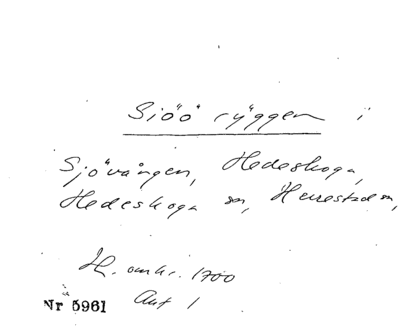 Sjöö ryggen i
Sjövången, Hedeskoga,
Hedeskoga sn, Herrestads,
H. omkr. 1700
Akt 1
Nr 5961